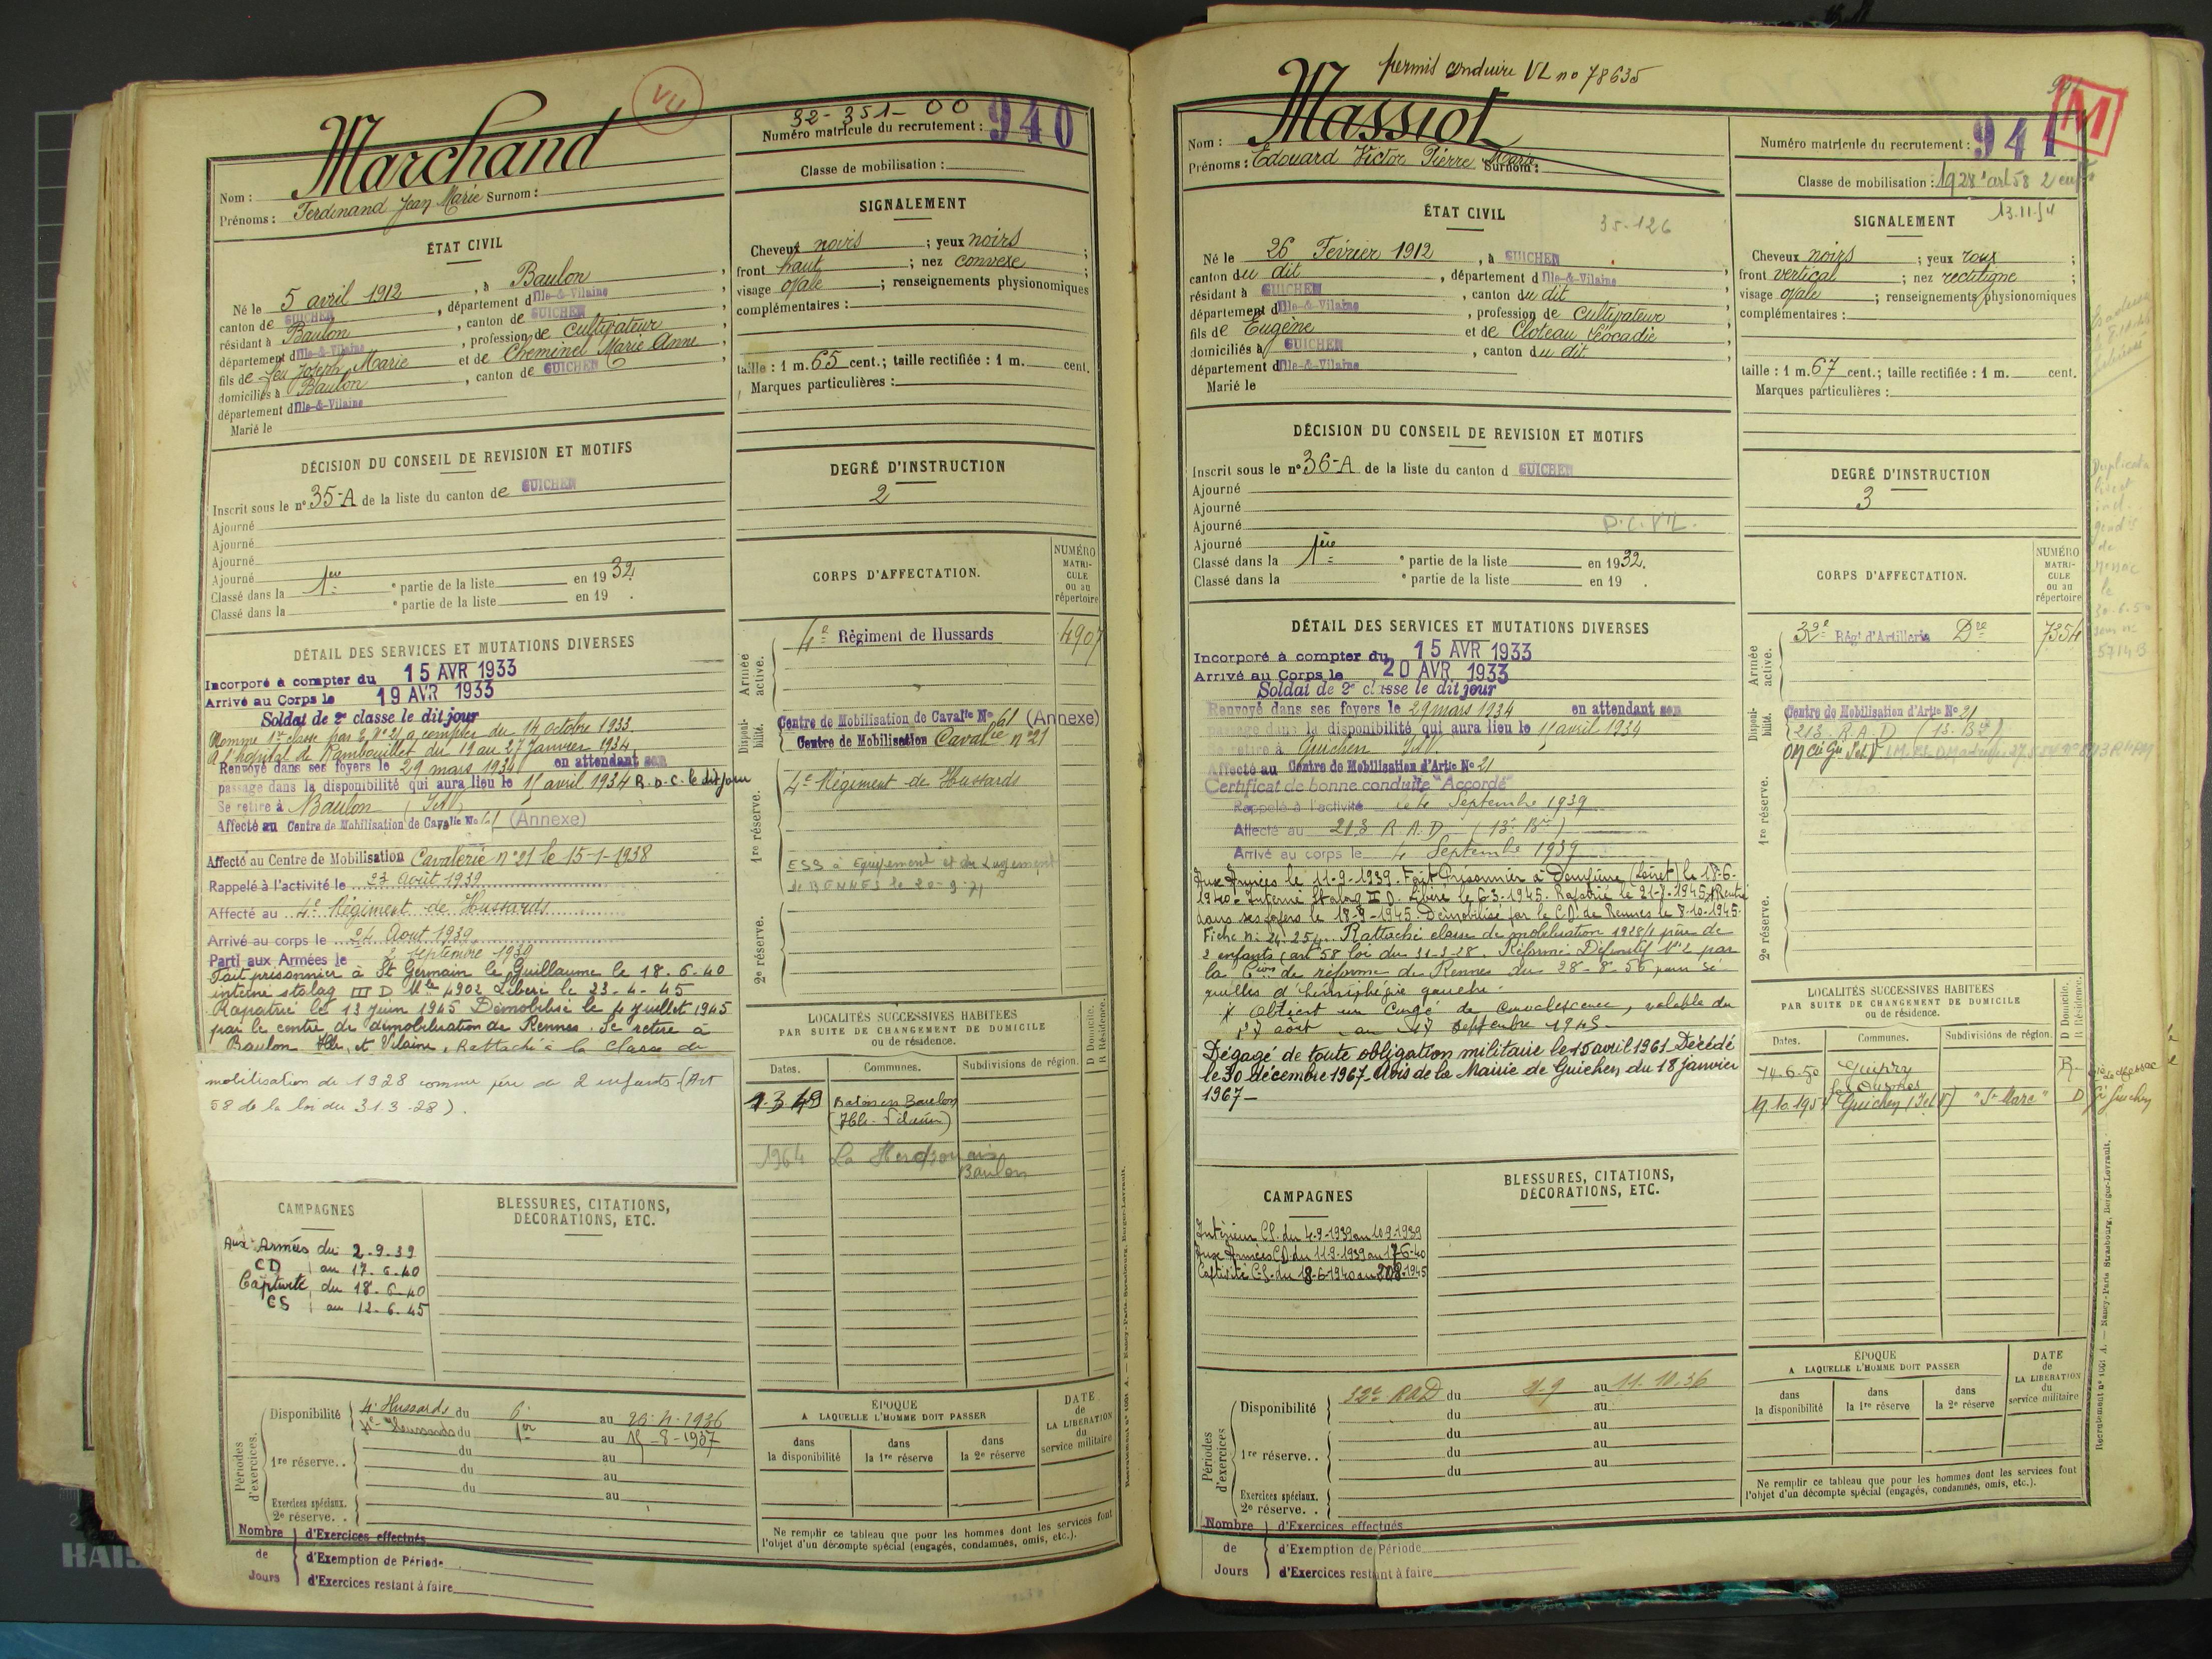 VU
Marchand
Nom :
Prénoms : Ferdinand Jean Marie Surnom :
32-351-00
Numéro matricule du recrutement : 940
Classe de mobilisation :
ÉTAT CIVIL
Né le 5 avril 1912, à Baulon
canton de GUICHEN, département d'Ille-&-Vilaine
résidant à Baulon, canton de GUICHEN
département d'Ille-&-Vilaine, profession de cultivateur
fils de feu Joseph Marie et de Cheminel Marie Anne
domiciliés à Baulon, canton de GUICHEN
département d'Ille-&-Vilaine
Marié le
SIGNALEMENT
Cheveux noirs ; yeux noirs ;
front haut ; nez convexe ;
visage ovale ; renseignements physionomiques
complémentaires :
taille : 1 m. 65 cent. ; taille rectifiée : 1 m. cent.
Marques particulières :
DÉCISION DU CONSEIL DE REVISION ET MOTIFS
Inscrit sous le n° 35-A de la liste du canton de GUICHEN
Ajourné
Ajourné
Ajourné
Ajourné
Classé dans la 1ère e partie de la liste en 1932.
Classé dans la e partie de la liste en 19 .
DEGRÉ D'INSTRUCTION
2
DÉTAIL DES SERVICES ET MUTATIONS DIVERSES
Incorporé à compter du 15 AVR 1933
Arrivé au Corps le 19 AVR 1933
Soldat de 2e classe le dit jour
Nommé 1re classe par N° 21 a compter du 14 octobre 1933
A l'hôpital de Rambouillet du 19 au 27 Janvier 1934
Renvoyé dans ses foyers le 29 mars 1934 en attendant son
passage dans la disponibilité qui aura lieu le 15 avril 1934 R.D.C. le dit jour
Se retire à Baulon I&V
Affecté au Centre de Mobilisation de Cavalie No 61 (Annexe)
Affecté au Centre de Mobilisation Cavalerie n°21 le 15-1-1938
Rappelé à l'activité le 23 Août 1939
Affecté au 4e Régiment de Hussards
Arrivé au corps le 24 Août 1939
Parti aux Armées le 2 septembre 1939
Fait prisonnier à St Germain le Guillaume le 18.6.40
interné stalag III D Mle 4902 Libéré le 23-4-45
Rapatrié le 13 Juin 1945 Démobilisé le 4 Juillet 1945
par le centre de démobilisation de Rennes. Se retire à
Baulon Ille et Vilaine, Rattaché à la classe de
mobilisation de 1928 comme père de 2 enfants (Art
58 de la loi du 31.3.28).
CORPS D'AFFECTATION.
NUMÉRO MATRICULE ou au répertoire
Armée active.
4e Régiment de Hussards 4907
Disponibilité.
Centre de Mobilisation de Cavalie No 61 (Annexe)
Centre de Mobilisation Cavalie n°21
1re réserve.
4e Régiment de Hussards
ESS à Equipement et du Logement
de RENNES le 20-9-71
2e réserve.
LOCALITÉS SUCCESSIVES HABITÉES
PAR SUITE DE CHANGEMENT DE DOMICILE
ou de résidence.
D Domicile. R Résidence.
Dates. Communes. Subdivisions de région.
1.3.49 Baulon
(Ille-Vilaine)
1964 Baulon
CAMPAGNES
BLESSURES, CITATIONS,
DÉCORATIONS, ETC.
Aux Armées du 2.9.39
CD au 17.6.40
Captivité du 18.6.40
CS au 12.6.45
Périodes d'exercices.
Disponibilité 4e Hussards du 6 au 26-4-1936
4e Hussards du 1er au 15-8-1937
1re réserve. . du au
du au
du au
Exercices spéciaux.
2e réserve. .
Nombre de Jours
d'Exercices effectués
d'Exemption de Période
d'Exercices restant à faire
ÉPOQUE
A LAQUELLE L'HOMME DOIT PASSER
dans la disponibilité
dans la 1re réserve
dans la 2e réserve
DATE de LA LIBÉRATION du service militaire
Ne remplir ce tableau que pour les hommes dont les services font
l'objet d'un décompte spécial (engagés, condamnés, omis, etc.).
permis conduire VL no 78635
Massiot
Nom :
Prénoms : Edouard Victor Pierre Marie Surnom :
M
Numéro matricule du recrutement : 941
Classe de mobilisation : 1928 art 58 2 enfts
13.11.54
ÉTAT CIVIL
35-126
Né le 26 Février 1912, à GUICHEN
canton du dit, département d'Ille-&-Vilaine
résidant à GUICHEN, canton du dit
département d'Ille-&-Vilaine, profession de Cultivateur
fils de Eugène et de Cloteau Léocadie
domiciliés à GUICHEN, canton du dit
département d'Ille-&-Vilaine
Marié le
SIGNALEMENT
Cheveux noirs ; yeux roux ;
front vertical ; nez rectiligne ;
visage ovale ; renseignements physionomiques
complémentaires :
taille : 1 m. 67 cent. ; taille rectifiée : 1 m. cent.
Marques particulières :
DÉCISION DU CONSEIL DE REVISION ET MOTIFS
Inscrit sous le n° 36-A de la liste du canton d GUICHEN
Ajourné
Ajourné
Ajourné P.C.VL.
Ajourné
Classé dans la 1ère e partie de la liste en 1932.
Classé dans la e partie de la liste en 19 .
DEGRÉ D'INSTRUCTION
3
Duplicata
livret
ind.
de
Messac
le
30.6.50
57143
DÉTAIL DES SERVICES ET MUTATIONS DIVERSES
Incorporé à compter du 15 AVR 1933
Arrivé au Corps le 20 AVR 1933
Soldat de 2e classe le dit jour
Renvoyé dans ses foyers le 29 mars 1934 en attendant son
passage dans la disponibilité qui aura lieu le 15 avril 1934
Se retire à Guichen I&V
Affecté au Centre de Mobilisation d'Artie No 21
Certificat de bonne conduite "Accordé"
Rappelé à l'activité le 4 Septembre 1939
Affecté au 213 R A D (13e Bie)
Arrivé au corps le 4 Septembre 1939
Aux Armées le 11-9-1939. Fait Prisonnier à (Loiret) le 18-6-
1940. Interné Stalag II D. Libéré le 6-3-1945. Rapatrié le 21-8-1945 * Rentré
dans ses foyers le 18-9-1945. Démobilisé par le C.D. de Rennes le 8-10-1945.
Fiche N: 24.254. Rattaché classe de mobilisation 1928/1 père de
2 enfants (art 58 loi du 31-3-28. Réformé Définitif N°2 par
la Cion de réforme de Rennes du 28-8-56 pour sé-
quelles d'hémiplégie gauche.
* Obtient un Congé de Convalescence, valable du
août au 17 septembre 1945
Dégagé de toute obligation militaire le 15 avril 1961. Décédé
le 30 décembre 1967. Avis de la Mairie de Guichen du 18 janvier
1967
CORPS D'AFFECTATION.
NUMÉRO MATRICULE ou au répertoire
Armée active.
32e Régt d'Artillerie Dre 7354
Disponibilité.
Centre de Mobilisation d'Artie No 21
(213 R.A.D (13. Bie)
1re réserve.
2e réserve.
LOCALITÉS SUCCESSIVES HABITÉES
PAR SUITE DE CHANGEMENT DE DOMICILE
ou de résidence.
D Domicile. R Résidence.
Dates. Communes. Subdivisions de région.
14.6.50 Guipry R. de Messac
19.10.195 Guichen "St Marc" D Guichen
CAMPAGNES
BLESSURES, CITATIONS,
DÉCORATIONS, ETC.
Intérieur CS. du 4-9-1939 au 10-9-1939
Aux Armées CD. du 11-9-1939 au 17-6-40
Captivité CS. du 18-6-1940 au 20-8-1945
Périodes d'exercices
Disponibilité 32e RAD du au 11.10.36
du au
du au
1re réserve. . du au
du au
Exercices spéciaux.
2e réserve. .
Nombre de Jours
d'Exercices effectués
d'Exemption de Période
d'Exercices restant à faire
ÉPOQUE
A LAQUELLE L'HOMME DOIT PASSER
dans la disponibilité
dans la 1re réserve
dans la 2e réserve
DATE de LA LIBÉRATION du service militaire
Ne remplir ce tableau que pour les hommes dont les services font
l'objet d'un décompte spécial (engagés, condamnés, omis, etc.).
Recrutement n° 1001 A. — Nancy-Paris Strasbourg, Berger-Levrault.